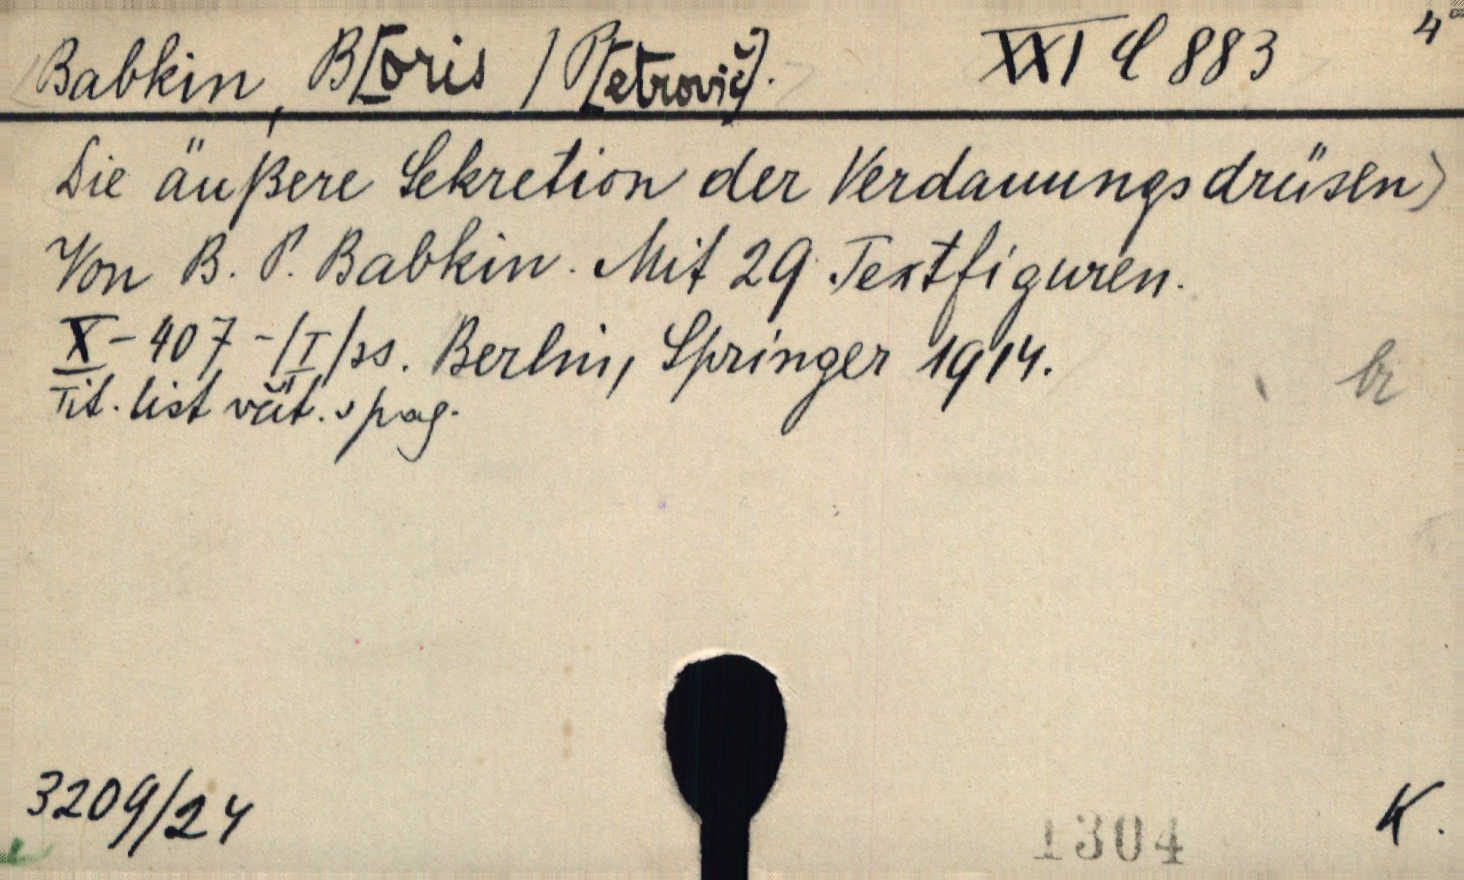 Babkin, B[oris] P[etrovič]. XXI C 883 4°
Die äußere Sekretion der Verdauungsdrüsen
Von B. P. Babkin. Mit 29 Textfiguren.
X-407-/I/ ss. Berlin, Springer 1914.
Tit. list včít. v pag.
br
3209/24
1304
K.